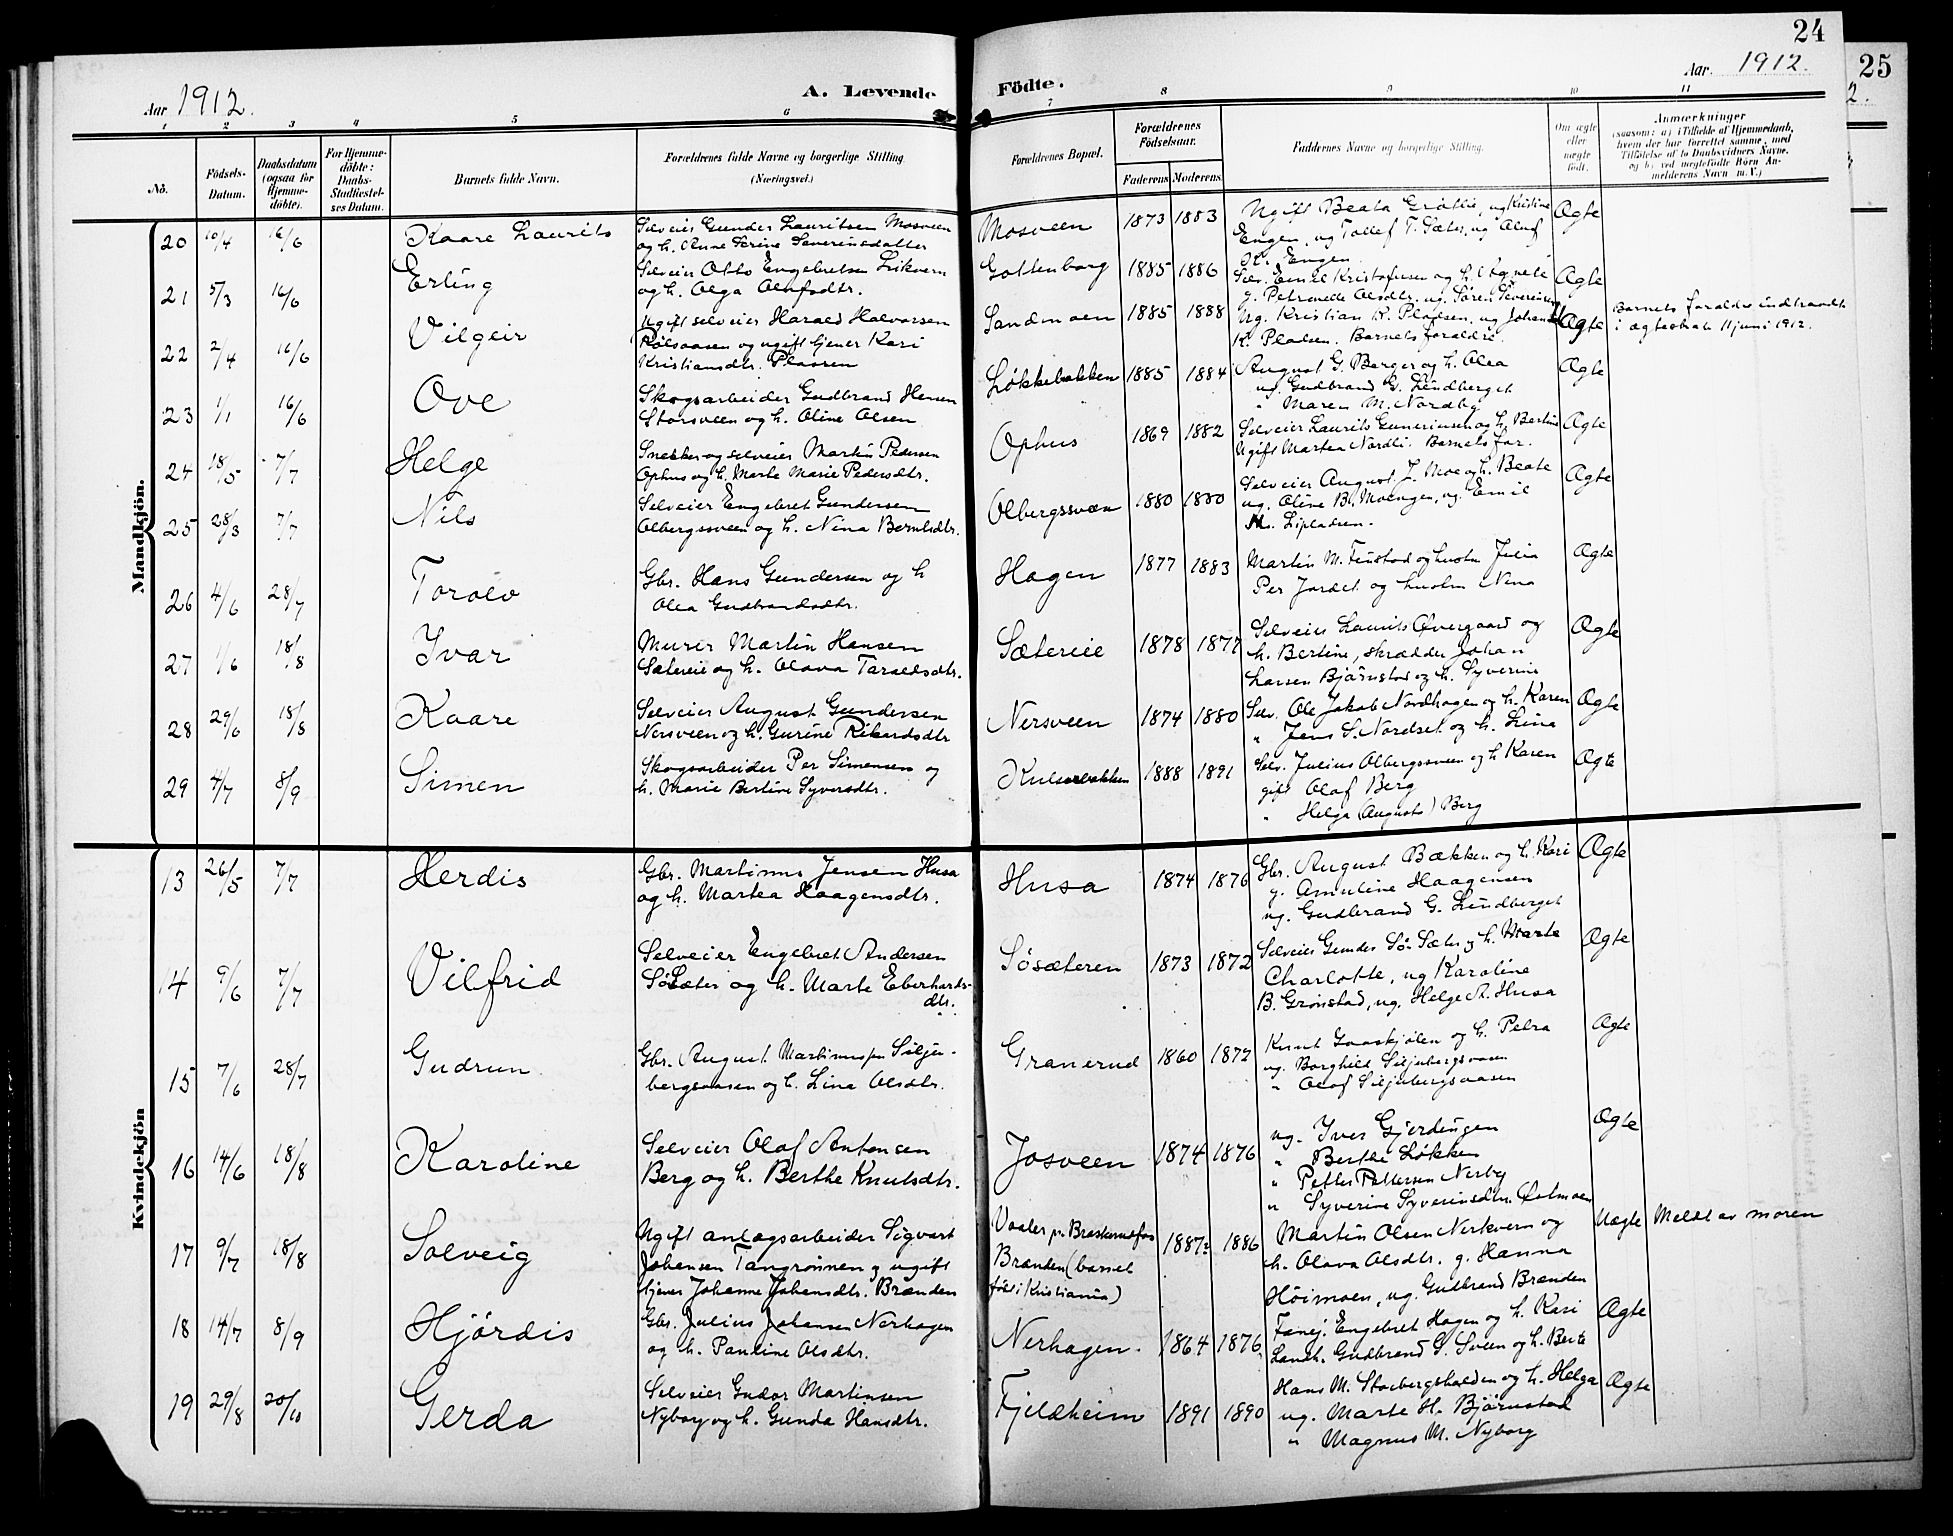 24
25
Aar 1912.
A. Levende
Födte.
Aar. 1912.
2.
1 2 3 4 5 6
7 8 9 10 11
No.
Födsels-
Datum.
Daabsdatum
(ogsaa for
Hjemme-
döbte).
For Hjemme-
döbte:
Daabs-
Stadfæstel-
ses Datum.
Barnets fulde Navn.
Forældrenes fulde Navne og borgerlige Stilling.
(Næringsvei.)
Forældrenes Bopæl.
Forældrenes
Födselsaar.
Faderens Moderens
Faddernes Navne og borgerlige Stilling.
Om ægte
eller
uægte
födt.
Anmærkninger
(saasom: a) i Tilfælde af Hjemmedaab,
hvem der har forrettet samme, med
Tilföielse af to Daabsvidners Navne,
og b) ved uægtefödte Börn An-
melderens Navn m. V.)
Mandkjön.
20 10/4 16/6 Kaare Laurits
Selveier Gunder Lauritsen Mosveen
og h. Anne Serine Severinsdatter
Mosveen 1873 1883
Ugift Beata Grøtli, ug Kristine
Engen, ug Tollef T. Sæter, ug Oluf
K. Engen
Ægte
21 5/3 16/6 Erling
Selveier Otto Engebretsen
og h. Olga Olufsdtr.
Gottenborg 1885 1886
Selv. Emil Kristofersen og h. Agnete
g. Petronede Olsdtr. ug. Søren Severinsen
Ægte
22 2/4 16/6 Vilgeir
Ugift selveier Harald Halvorsen
Rølsaasen og ugift tjener Kari
Kristiansdtr. Plassen
Sandmoen 1885 1888
Ug. Kristian K. Pladsen, ug Johan
K. Pladsen. Barnets forældre.
Ægte
Barnets forældre indtraadt
i ægteskab 11 juni 1912.
23 1/1 16/6 Ove
Skogsarbeider Gudbrand Hansen
Storsveen og h. Oline Olsen
Løkkebakken 1885 1884
August G. Berger og h. Olea
ug. Gudbrand G. Lundberget
" Maren M. Nordby
Ægte
24 18/5 7/7 Helge
Snekker og selveier Martin Pedersen
Ophus og h. Marte Marie Pedersdtr.
Ophus 1869 1882
Selveier Laurits Gunerinsen og h. Bertine
Ugift Martea Nordli. Barnets far.
Ægte
25 28/3 7/7 Nils
Selveier Engebret Gundersen
Olbergssveen og h. Nina Berntsdtr.
Olbergssveen 1880 1880
Selveier August J. Moe og h. Beate
ug. Oline B. Moengen, ug. Emil
M. Lipladsen.
Ægte
26 4/6 28/7 Torolv
Gbr. Hans Gundersen og h
Olea Gudbrandsdtr.
Hagen 1877 1883
Martin M. Finstad og hustru Julia
Per Jordet og hustru Nina
Ægte
27 1/6 18/8 Ivar
Murer Martin Hansen
Sætereie og h. Olava Taraldsdtr.
Sætereie 1878 1877
Selveier Laurits Øvergaard og
h. Bertine, skrædder Johan
Larsen Bjørnstad og h. Syverine
Ægte
28 29/6 18/8 Kaare
Selveier August Gundersen
Nersveen og h. Gurine Rikardsdtr
Nersveen 1874 1880
Selv. Ole Jakob Nordhagen og h. Karen
" Jens S. Nordset og h. Lina
Ægte
29 4/7 8/9 Simen
Skogsarbeider Per Simensen og
h. Marie Bertine Syversdtr.
1888 1891
Selv. Julius Olbergssveen og h Karen
gift Olaf Berg
" Helga (Augusta) Berg
Ægte
Kvindekjön
13 26/5 7/7 Herdis
Gbr. Martinus Jensen Husa
og h. Martea Haagensdtr.
Husa 1874 1876
Gbr. August Bækken og h. Kari
g. Amuline Haagensen
ug. Gudbrand G. Lundberget
Ægte
14 9/6 7/7 Vilfrid
Selveier Engebret Andersen
Søsæter og h. Marte Eberhards-
dtr.
Søsæteren 1873 1872
Selveier Gunder Sø. Sæter og h. Marte
Charlotte, ug Karoline
B. Grønstad, ug. Helge A. Husa
Ægte
15 7/6 28/7 Gudrun
Gbr. August Martinussen Silju-
bergsaasen og h. Lina Olsdtr.
Granerud 1860 1872
Knut Graaskjølen og h. Petra
ug. Borghild Siljubergsaasen
" Olaf Siljubergsaasen
Ægte
16 14/6 18/8 Karoline
Selveier Olaf Antonsen
Berg og h. Berthe Knutsdtr.
Josveen 1874 1876
ug. Iver Gjerdingen
" Berthe Løkken
" Petter Pettersen Nerby
" Syverine Syverinsdtr. Østmoen
Ægte
17 9/7 18/8 Solveig
Ugift anlægsarbeider Sigvart
Johansen Tangrønnen og ugift
tjener Johanne Johansdtr. Brænden
Vaaler pr. Braskerudfos
Brænden (barnet
født i Kristiania)
1887? 1886
Martin Olsen Nerkvern og
h. Olava Olsdtr. g. Hanna
Høimoen, ug. Gudbrand Brænden
Uægte Meldt av moren
18 14/7 8/9 Hjørdis
Gbr. Julius Johansen Nerhagen
og h. Pauline Olsdtr.
Nerhagen. 1864 1876
Engebret Hagen og h. Kari
Landh. Gudbrand S. Sveen og h. Berte
Ægte
19 29/8 20/10 Gerda
Selveier Gudor Martinsen
Nyborg og h. Gunda Hansdtr.
Fjeldheim 1891 1890
Hans M. Storbergshalden og h. Helga
ug. Marte H. Bjørnstad
" Magnus M. Nyborg
Ægte